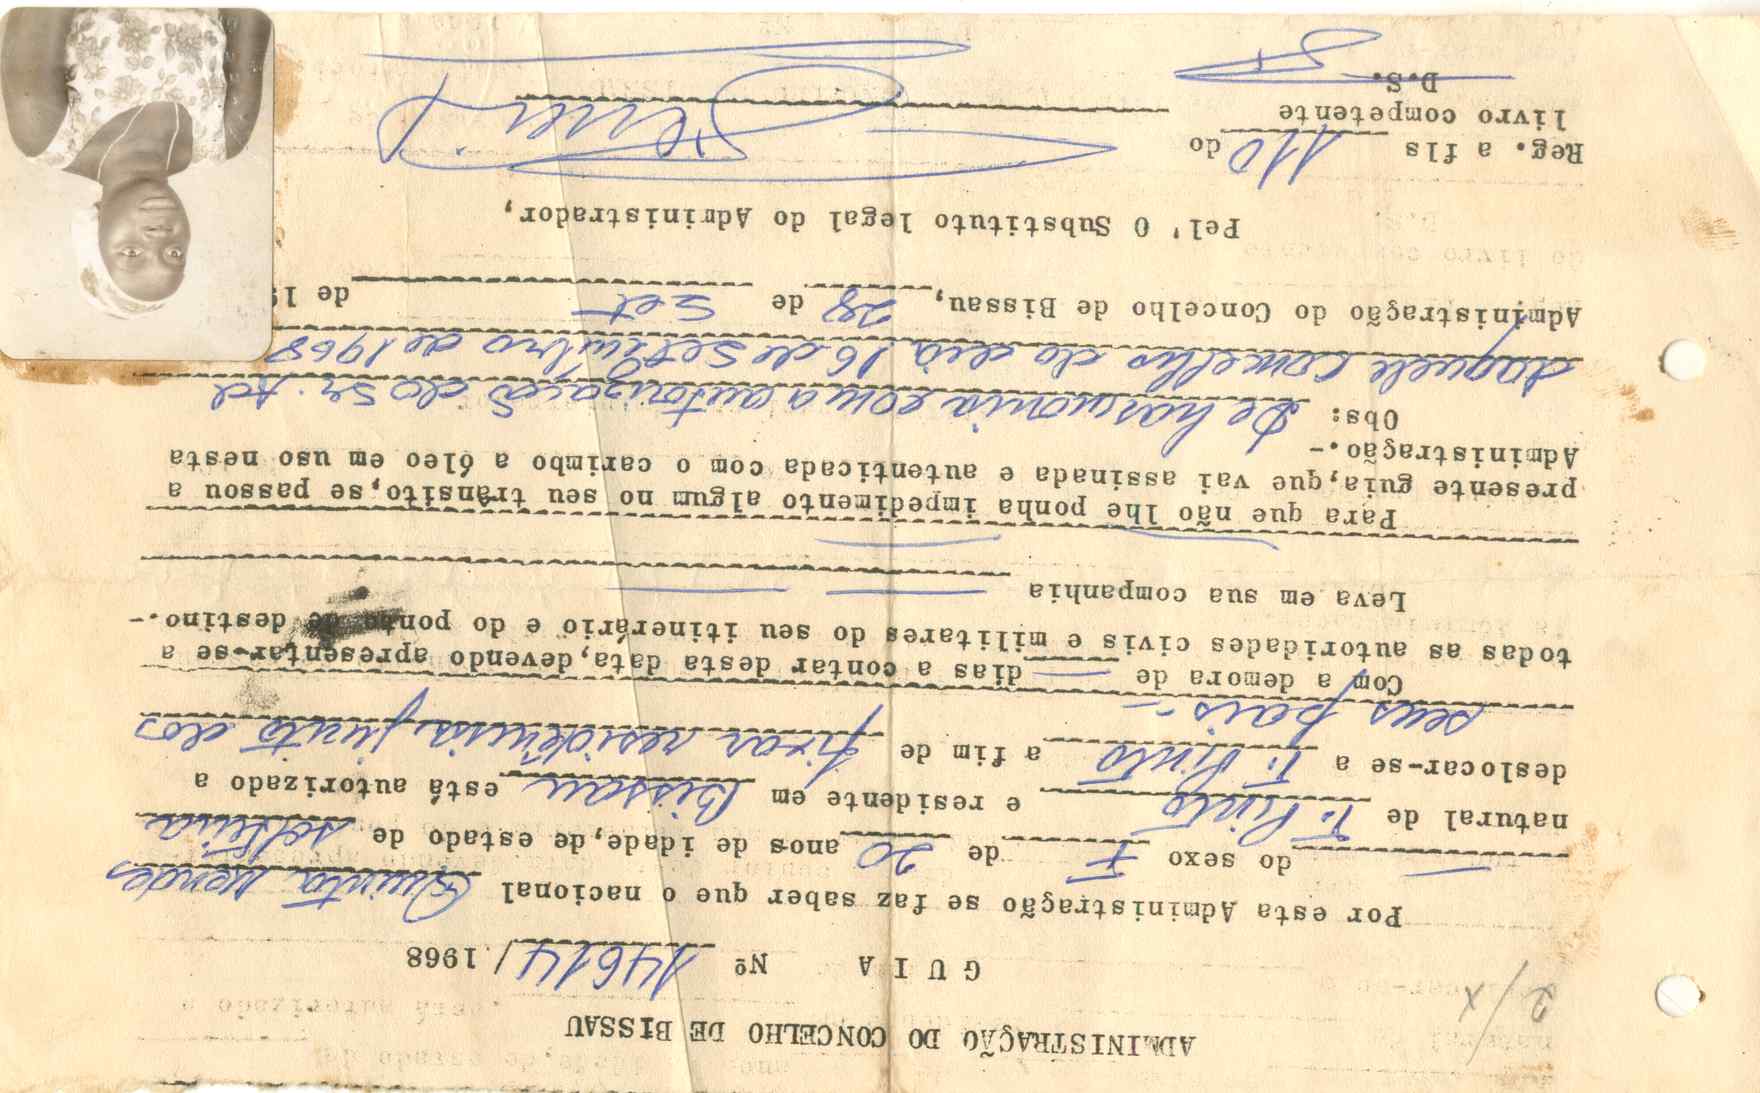 ADMINISTRAÇÃO DO CONCELHO DE BISSAU
G U I A Nº 14614/ 1968
Por esta Administração se faz saber que o nacional Quinta Mendes
do sexo F de 20 anos de idade, de estado de solteira
natural de T. Pinto e residente em Bissau está autorizado a
deslocar-se a T. Pinto a fim de fixar residência junto dos
seus pais.-
Com a demora de — dias a contar desta data, devendo apresentar-se a
todas as autoridades civis e militares do seu itinerário e do ponto de destino.-
Leva em sua companhia
Para que não lhe ponha impedimento algum no seu trânsito, se passou a
presente guia, que vai assinada e autenticada com o carimbo a óleo em uso nesta
Administração.-
Obs: De harmonia com a autorização do Sr. Ad
daquele Concelho do dia 16 de Setembro de 1968
Administração do Concelho de Bissau, 28 de Set de 19
Pel' O Substituto legal do Administrador,
Reg. a fls 110 do
livro competente
D.S.
2/X